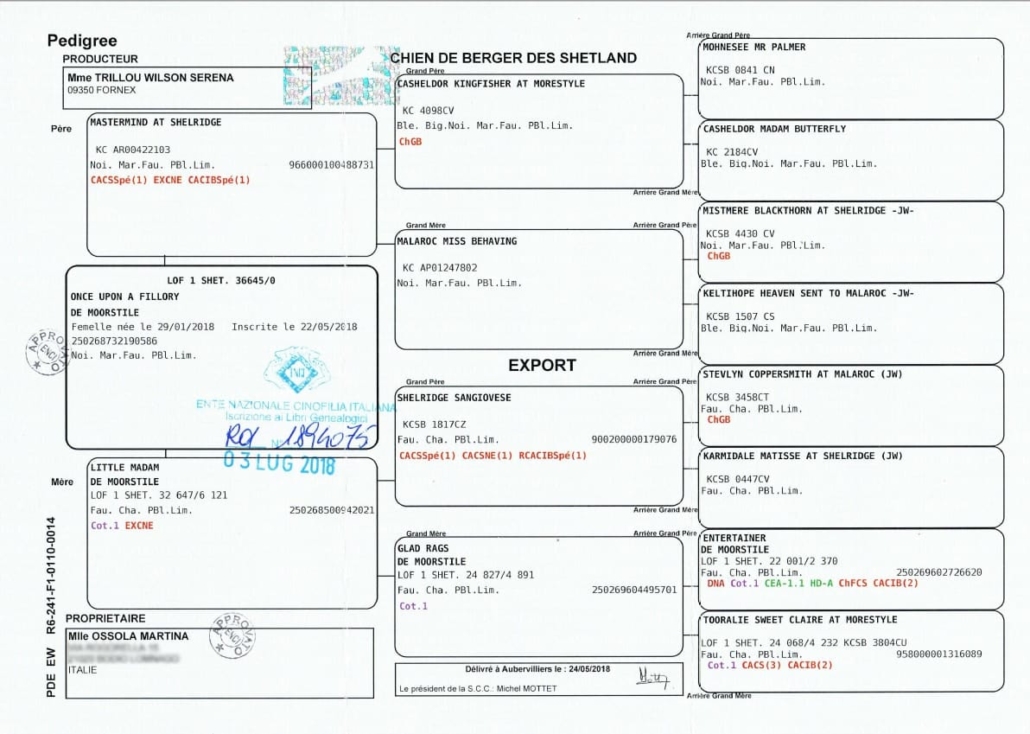 Pedigree
PRODUCTEUR
Mme TRILLOU WILSON SERENA
09350 FORNEX
CHIEN DE BERGER DES SHETLAND
Père
MASTERMIND AT SHELRIDGE
KC AR00422103
Noi. Mar.Fau. PBl.Lim. 966000100488731
CACSSpé(1) EXCNE CACIBSpé(1)
LOF 1 SHET. 36645/0
ONCE UPON A FILLORY
DE MOORSTILE
Femelle née le 29/01/2018 Inscrite le 22/05/2018
250268732190586
Noi. Mar.Fau. PBl.Lim.
APPROVATO
ENCI
ENTE NAZIONALE CINOFILIA ITALIANA
Iscrizione ai Libri Genealogici
ROI N° 1894075
03 LUG 2018
Mère
LITTLE MADAM
DE MOORSTILE
LOF 1 SHET. 32 647/6 121
Fau. Cha. PBl.Lim. 250268500942021
Cot.1 EXCNE
PROPRIETAIRE
Mlle OSSOLA MARTINA
ITALIE
APPROVATO
ENCI
PDE EW R6-241-F1-0110-0014
Grand Père
CASHELDOR KINGFISHER AT MORESTYLE
KC 4098CV
Ble. Big.Noi. Mar.Fau. PBl.Lim.
ChGB
Grand Mère
MALAROC MISS BEHAVING
KC AP01247802
Noi. Mar.Fau. PBl.Lim.
EXPORT
Grand Père
SHELRIDGE SANGIOVESE
KCSB 1817CZ
Fau. Cha. PBl.Lim. 900200000179076
CACSSpé(1) CACSNE(1) RCACIBSpé(1)
Grand Mère
GLAD RAGS
DE MOORSTILE
LOF 1 SHET. 24 827/4 891
Fau. Cha. PBl.Lim. 250269604495701
Cot.1
Délivré à Aubervilliers le : 24/05/2018
Le président de la S.C.C.: Michel MOTTET
Arrière Grand Père
MOHNESEE MR PALMER
KCSB 0841 CN
Noi. Mar.Fau. PBl.Lim.
CASHELDOR MADAM BUTTERFLY
KC 2184CV
Ble. Big.Noi. Mar.Fau. PBl.Lim.
Arrière Grand Mère
Arrière Grand Père
MISTMERE BLACKTHORN AT SHELRIDGE -JW-
KCSB 4430 CV
Noi. Mar.Fau. PBl.Lim.
ChGB
KELTIHOPE HEAVEN SENT TO MALAROC -JW-
KCSB 1507 CS
Ble. Big.Noi. Mar.Fau. PBl.Lim.
Arrière Grand Mère
Arrière Grand Père
STEVLYN COPPERSMITH AT MALAROC (JW)
KCSB 3458CT
Fau. Cha. PBl.Lim.
ChGB
KARMIDALE MATISSE AT SHELRIDGE (JW)
KCSB 0447CV
Fau. Cha. PBl.Lim.
Arrière Grand Mère
Arrière Grand Père
ENTERTAINER
DE MOORSTILE
LOF 1 SHET. 22 001/2 370
Fau. Cha. PBl.Lim. 250269602726620
DNA Cot.1 CEA-1.1 HD-A ChFCS CACIB(2)
TOORALIE SWEET CLAIRE AT MORESTYLE
LOF 1 SHET. 24 068/4 232 KCSB 3804CU
958000001316089
Cot.1 CACS(3) CACIB(2)
Arrière Grand Mère